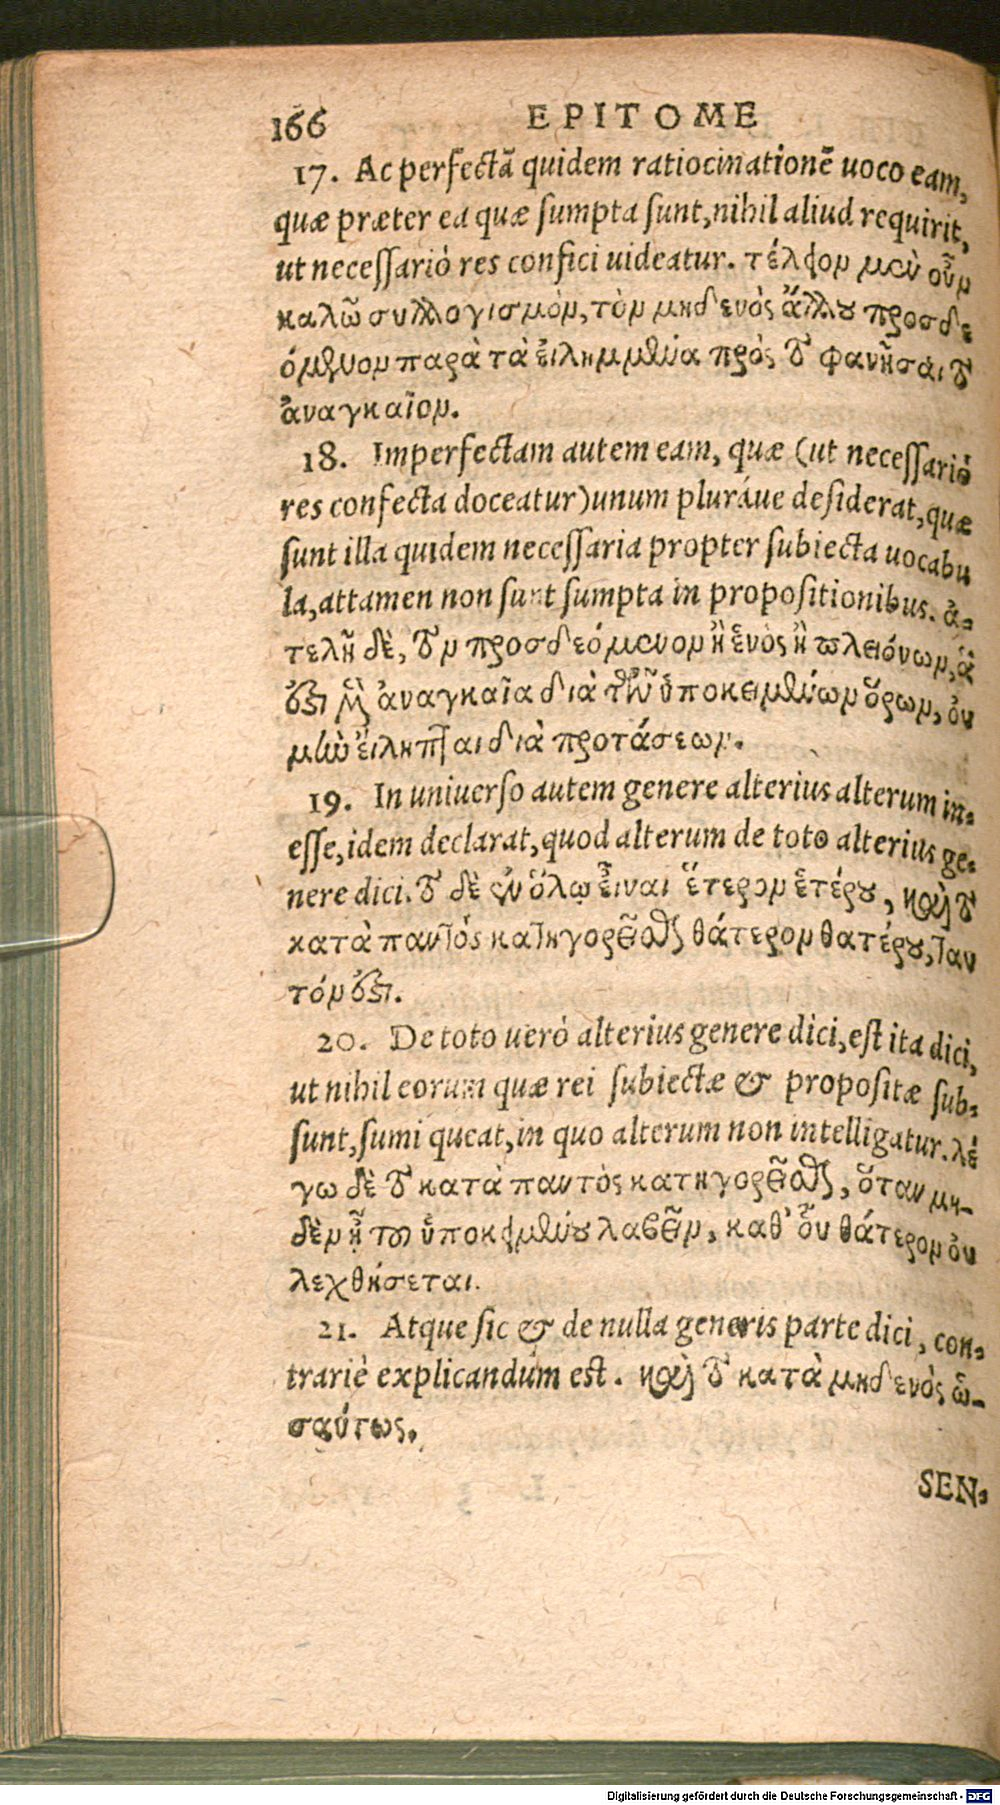 166 EPITOME
17. Ac perfectã quidem ratiocinationẽ uoco eam,
quæ præter ea quæ sumpta sunt, nihil aliud requirit,
ut necessariò res confici uideatur. τέλειον μὲν οὖν
καλῶ συλλογισμὸν, τὸν μηδενὸς ἄλλου προσδε
όμενον παρὰ τὰ εἰλημμένα πρὸς τὸ φανῆσαι τὸ
ἀναγκαῖον.
18. Imperfectam autem eam, quæ (ut necessariò
res confecta doceatur) unum pluráue desiderat, quæ
sunt illa quidem necessaria propter subiecta uocabu
la, attamen non sunt sumpta in propositionibus. ἀ-
τελῆ δὲ, τὸν προσδεόμενον ἢ ἑνὸς ἢ πλειόνων, ἃ
ἔστι μὲν ἀναγκαῖα διὰ τῶν ὑποκειμένων ὅρων, οὐ
μὴν εἴληπται διὰ προτάσεων.
19. In uniuerso autem genere alterius alterum in-
esse, idem declarat, quod alterum de toto alterius ge-
nere dici. τὸ δὲ ἐν ὅλῳ εἶναι ἕτερον ἑτέρου, καὶ τὸ
κατὰ παντὸς κατηγορεῖσθαι θάτερον θατέρου, ταυ
τόν ἐστι.
20. De toto uerò alterius genere dici, est ita dici,
ut nihil eorum quæ rei subiectæ & propositæ sub-
sunt, sumi queat, in quo alterum non intelligatur. λέ
γω δὲ τὸ κατὰ παντὸς κατηγορεῖσθαι, ὅταν μη-
δὲν ᾖ τοῦ ὑποκειμένου λαβεῖν, καθ' οὗ θάτερον οὐ
λεχθήσεται.
21. Atque sic & de nulla generis parte dici, con-
trariè explicandum est. καὶ τὸ κατὰ μηδενὸς ὡ-
σαύτως.
SEN-
Digitalisierung gefördert durch die Deutsche Forschungsgemeinschaft - DFG